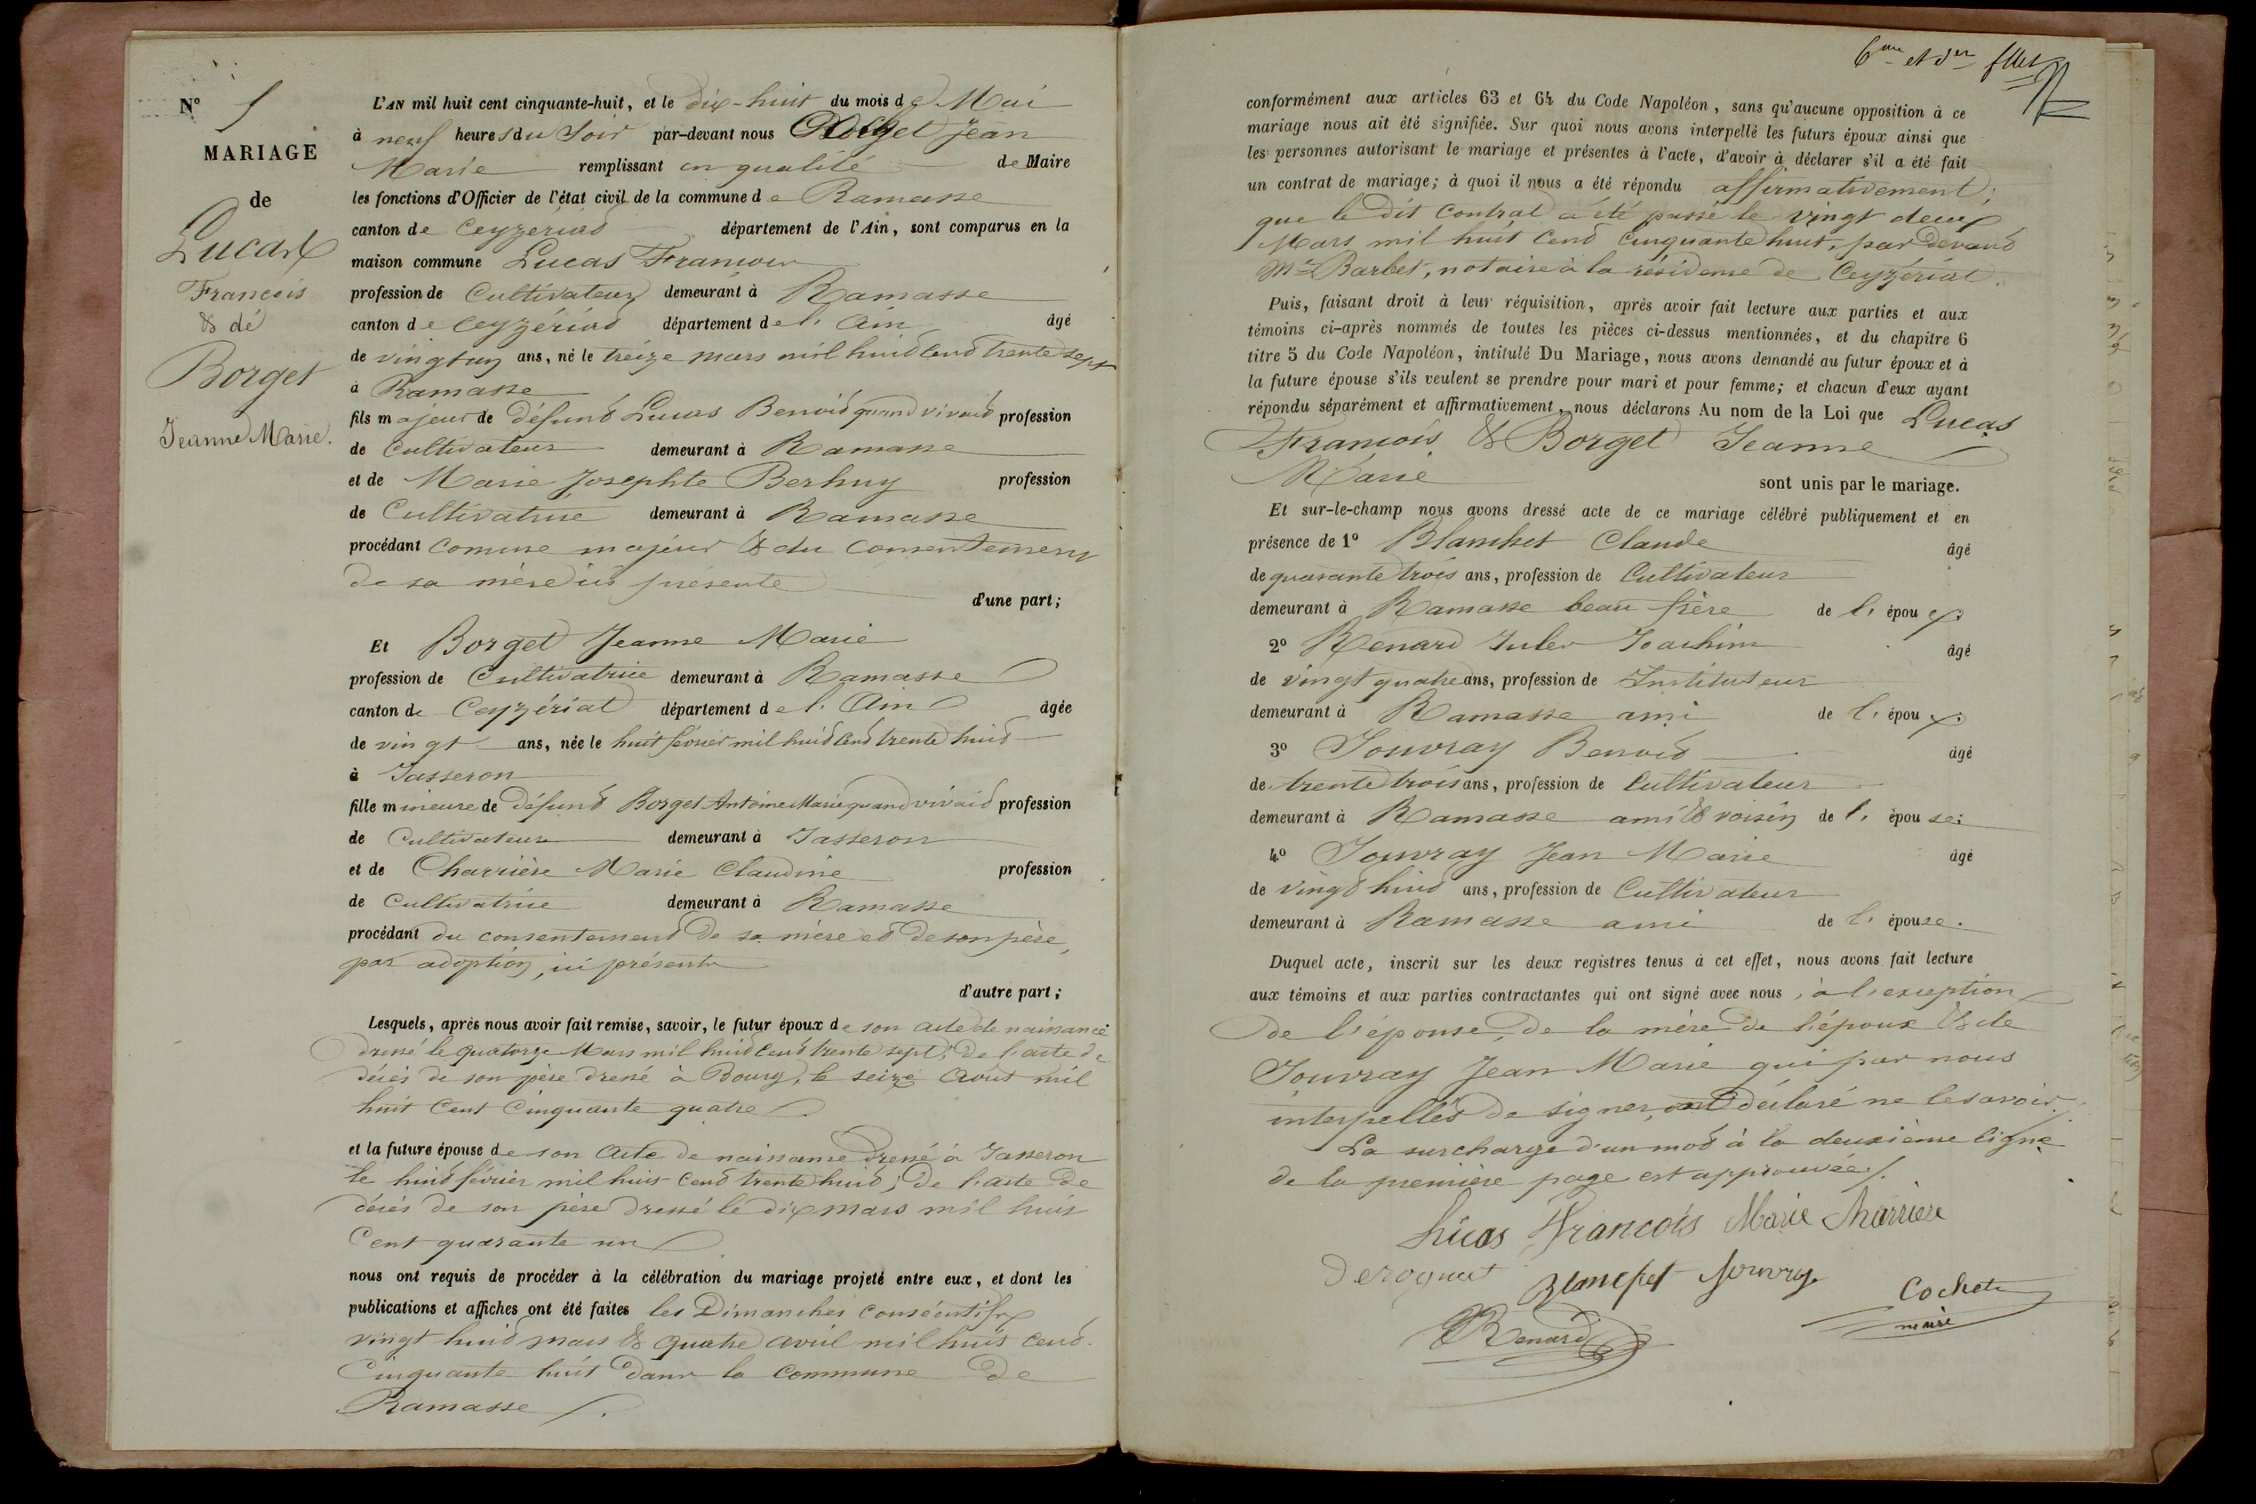 N° 5
MARIAGE
de
Lucas
François
& de
Borget
Jeanne Marie.
L'AN mil huit cent cinquante-huit, et le dix-huit du mois de Mai
à neuf heures du Soir par-devant nous Jean
Marie remplissant en qualité de Maire
les fonctions d'Officier de l'état civil de la commune de Ramasse
canton de Ceyzériat département de l'Ain, sont comparus en la
maison commune Lucas François
profession de Cultivateur demeurant à Ramasse
canton de Ceyzériat département de l'Ain âgé
de vingt un ans, né le treize mars mil huit cent trente sept
à Ramasse
fils majeur de défunt Lucas Benoit quand vivait profession
de Cultivateur demeurant à Ramasse
et de Marie Josephte Berhuy profession
de Cultivatrice demeurant à Ramasse
procédant comme majeur & du consentement
de sa mère ici présente
d'une part;
Et Borget Jeanne Marie
profession de Cultivatrice demeurant à Ramasse
canton de Ceyzériat département de l'Ain âgée
de vingt ans, née le huit février mil huit cent trente huit
à Jasseron
fille mineure de défunt Borget Antoine Marie quand vivait profession
de Cultivateur demeurant à Jasseron
et de Charrière Marie Claudine profession
de Cultivatrice demeurant à Ramasse
procédant du consentement de sa mère et de son père,
par adoption, ici présents
d'autre part;
Lesquels, après nous avoir fait remise, savoir, le futur époux de son acte de naissance
dressé le quatorze Mars mil huit cent trente sept; de l'acte de
décès de son père dressé à Bourg, le seize Août mil
huit Cent Cinquante quatre
et la future épouse de son Acte de naissance dressé à Jasseron
le huit février mil huit cent trente huit; de l'acte de
décès de son père dressé le dix mars mil huit
Cent quarante un
nous ont requis de procéder à la célébration du mariage projeté entre eux, et dont les
publications et affiches ont été faites les Dimanches consécutifs
vingt huit mars & quatre avril mil huit cent
Cinquante huit dans la commune de
Ramasse
6me et der fllet
conformément aux articles 63 et 64 du Code Napoléon, sans qu'aucune opposition à ce
mariage nous ait été signifiée. Sur quoi nous avons interpellé les futurs époux ainsi que
les personnes autorisant le mariage et présentes à l'acte, d'avoir à déclarer s'il a été fait
un contrat de mariage; à quoi il nous a été répondu affirmativement;
que le dit contrat a été passé le vingt deux
Mars mil huit Cent Cinquante huit, par devant
Me Barbet, notaire à la résidence de Ceyzériat.
Puis, faisant droit à leur réquisition, après avoir fait lecture aux parties et aux
témoins ci-après nommés de toutes les pièces ci-dessus mentionnées, et du chapitre 6
titre 5 du Code Napoléon, intitulé Du Mariage, nous avons demandé au futur époux et à
la future épouse s'ils veulent se prendre pour mari et pour femme; et chacun d'eux ayant
répondu séparément et affirmativement, nous déclarons Au nom de la Loi que Lucas
François & Borget Jeanne
Marie
sont unis par le mariage.
Et sur-le-champ nous avons dressé acte de ce mariage célébré publiquement et en
présence de 1° Blanchet Claude âgé
de quarante trois ans, profession de Cultivateur
demeurant à Ramasse beau frère de l'époux
2° Renard Jules Joachim âgé
de vingt quatre ans, profession de Instituteur
demeurant à Ramasse ami de l'époux.
3° Jouvray Benoit âgé
de trente trois ans, profession de Cultivateur
demeurant à Ramasse ami & voisin de l'épouse:
4° Jouvray Jean Marie âgé
de vingt huit ans, profession de Cultivateur
demeurant à Ramasse ami de l'épouse.
Duquel acte, inscrit sur les deux registres tenus à cet effet, nous avons fait lecture
aux témoins et aux parties contractantes qui ont signé avec nous, à l'exception
de l'épouse, de la mère de l'époux & de
Jouvray Jean Marie qui par nous
interpellés de signer, ont déclaré ne le savoir.
La surcharge d'un mot à la deuxième ligne
de la première page est approuvée.
Lucas François Marie Charriere
Deroguet Blanchet Jouvray
Cochet
maire
Renard